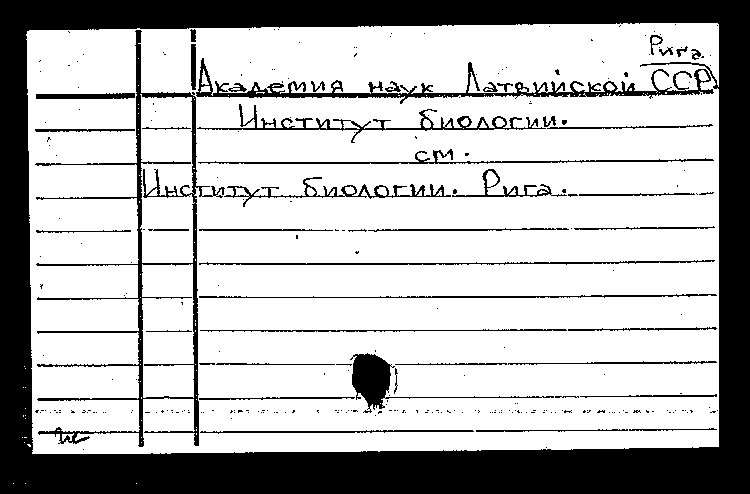 Рига
Академия наук Латвийской ССР.
Институт биологии.
см.
Институт биологии. Рига.